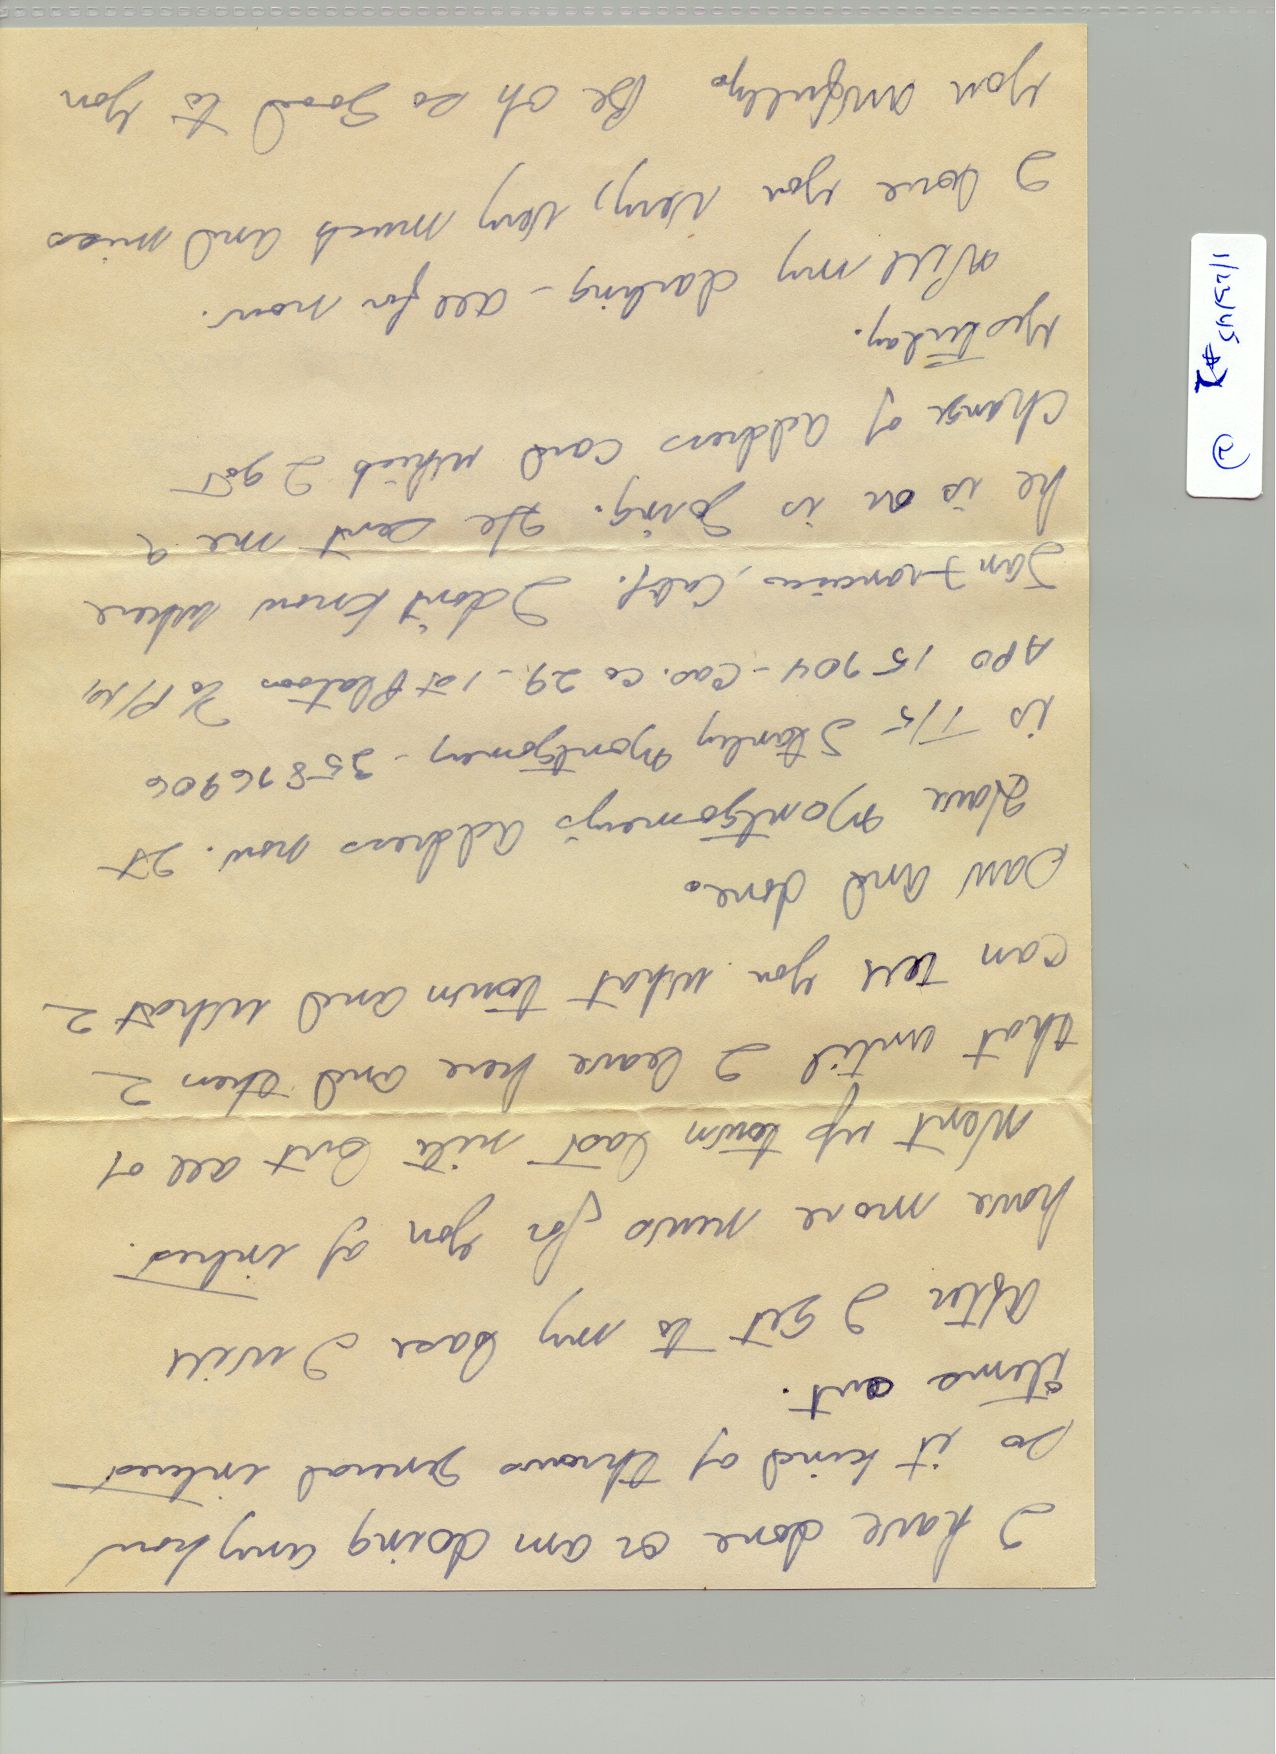 I have done or am doing anyhow
so it kind of throws general interest
items out.
After I get to my base I will
have more news for you of intrest.
Went up town last nite but all of
that until I leave here and then I
can tell you what town and what I
saw and done.
Have Montgomery's address now. It
is T/5 Stanley Montgomery - 35876906
APO 15904 - Cas. Co 29 - 1st Platoon % P/M,
San Francisco, Calif. I don't know where
he is or is going. He sent me a
change of address card which I got
yesterday.
Well my darling - all for now.
I love you very, very much and miss
you awfully. Be oh so good to you
1/23/45 #2
2